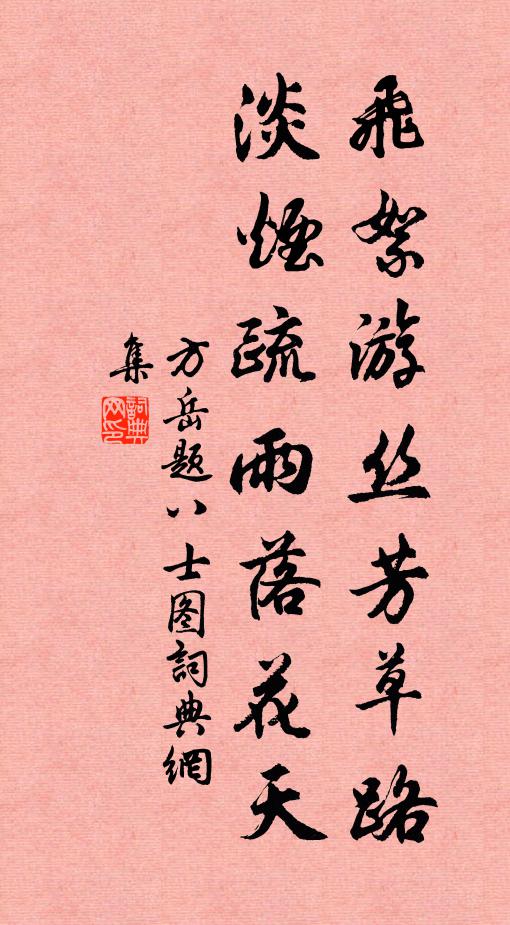 飛絮游丝芳草路
淡煙疏雨落花天
方岳题八士图詞典網
集
詞典网印